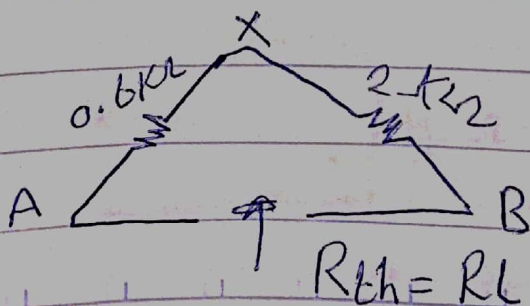 X
0.6KΩ
2-KΩ
A
B
Rth = RL